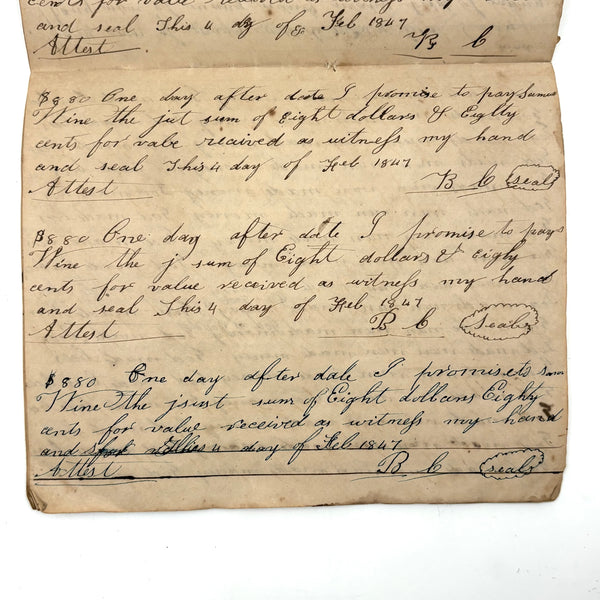 cents for value received as
and seal This 4 day of Feb 1847
Attest B C
$880 One day after date I promise to pay Samuel
Wine the just sum of Eight dollars & Eighty
cents for value received as witness my hand
and seal This 4 day of Feb 1847
Attest B C seal
$880 One day after date I promise to pay S
Wine the j sum of Eight dollars & Eighy
cents for value received as witness my hand
and seal This 4 day of Feb 1847
Attest B C seal
$880 One day after date I promise to
Wine the just sum of Eight dollars Eighty
cents for value received as witness my hand
and 4 day of Feb 1847
Attest B C seal